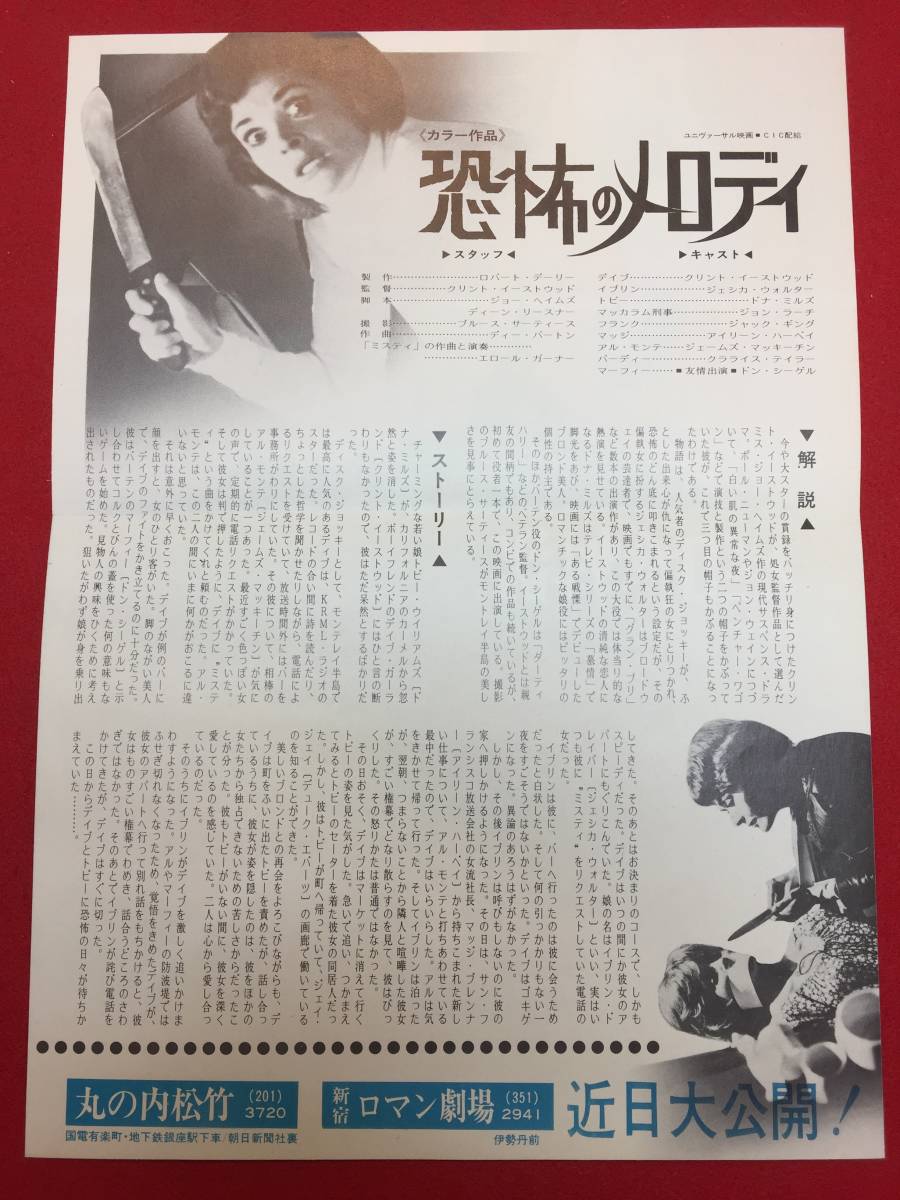 《カラー作品》
ユニヴァーサル映画■CIC配給
恐怖のメロディ
▶スタッフ◀
製作…………ロバート・デーリー
監督…………クリント・イーストウッド
脚本…………ジョー・ヘイムズ
ディーン・リースナー
撮影…………ブルース・サーティース
作曲…………ディー・バートン
「ミスティ」の作曲と演奏…………
…………エロール・ガーナー
▶キャスト◀
デイブ…………クリント・イーストウッド
イブリン…………ジェシカ・ウォルター
トビー…………ドナ・ミルズ
マッカラム刑事…………ジョン・ラーチ
フランク…………ジャック・ギング
マッジ…………アイリーン・ハーベイ
アル・モンテ……ジェームズ・マッキーチン
バーディー…………クラライス・テイラー
マーフィー……■友情出演■ドン・シーゲル
▼解説▲
今や大スターの貫録をバッチリ身につけたクリン
ト・イーストウッドが、処女監督作品として選んだ
ミス・ジョー・ヘイムズ作の現代サスペンス・ドラ
マ。ポール・ニューマンやジョン・ウェインにつづ
いて、「白い肌の異常な夜」「ベンチャー・ワゴ
ン」などで演技と製作という二つの帽子をかぶって
いた彼が、これで三つ目の帽子もかぶることになっ
たわけである。
物語は、人気者のディスク・ジョッキーが、ふ
とした出来心が仇となって偏執狂の女にとりつかれ、
恐怖のどん底に叩きこまれるという設定だが、その
偏執狂に扮するジェシカ・ウォルターはブロードウ
ェイの芸達者で、映画でもすでに「グラン・プリ」
など数本の出演作があり、この大役では体当り的な
熱演を見せている。イーストウッドの清純な恋人に
なるドナ・ミルズはテレビ・シリーズの「慕情」で
脚光をあび、映画には「ある戦慄」でデビューした
ブロンド美人。ロマンチックな娘役にはピッタリの
個性の持主である。
そのほかバーテン役のドン・シーゲルは「ダーティ
ハリー」などのベテラン監督。イーストウッドとは親
友の間柄でもあり、コンビでの作品も続いているが、
初めて役者一本で、この映画に出演している。撮影
のブルース・サーティースがモントレイ半島の美し
さを見事にとらえている。
▼ストーリー▲
チャーミングな若い娘トビー・ウイリアムズ〔ド
ナ・ミルズ〕が、カリフォルニアのカーメルから忽
然と姿を消した。ボーイフレンドのデイブ・ガーラ
ンド〔クリント・イーストウッド〕にはひと言の断
わりもなかったので、彼はただ呆然とするばかりだ
った。
ディスク・ジョッキーとして、モンテレイ半島で
は最高に人気のあるデイブは、KRML・ラジオの
スターだった。レコードの合い間に詩を読んだり、
ちょっとした哲学を聞かせたりしながら、電話によ
るリクエストを受けていて、放送時間外にはバーを
事務所がわりにしていた。その彼について、相棒の
アル・モンテ〔ジェームズ・マッキーチン〕が気に
していることが一つあった。最近すごく色っぽい女
の声で、定期的に電話リクエストがかかっていた。
そして彼女は判で押したように、デイブに〝ミステ
ィ〟という曲をかけてくれと頼むのだった。アル・
モンテは、この二人の間にいまに何かがおこるに違
いないと思っていた。
それは意外に早くおこった。デイブが例のバーに
顔を出すと、女のひとり客がいた。脚のながい美人
で、デイブのファイトをかき立てるのに十分だった。
彼はバーテンのマーフィー〔ドン・シーゲル〕と示
し合わせてコルクとびんの蓋を使った何の意味もな
いゲームを始めた。見物人の興味をひくために考え
出されたものだった。狙いたがわず娘が身を乗り出
してきた。そのあとはお決まりのコースで、しかも
スピーディだった。デイブはいつの間にか彼女のア
パートにもぐりこんでいた。娘の名はイブリン・ド
レイバー〔ジェシカ・ウォルター〕といい、実はい
つも彼に〝ミスティ〟をリクエストしていた電話の
女だった。
イブリンは彼に、バーへ行ったのは彼に会うため
だったと白状した。そして何の引っかかりもない一
夜をすごそうではないかといった。デイブはゴキゲ
ンになった。異論のあろうはずがなかった。
しかし、その後イブリンは呼びもしないのに彼の
家へ押しかけるようになった。その日は、サン・フ
ランシスコ放送会社の女流社長、マッジ・ブレンナ
ー〔アイリーン・ハーベイ〕から持ちこまれた新し
い仕事について、アル・モンテと打ちあわせている
最中だったので、デイブはいらいらした。アルは気
をきかせて帰って行った。そしてイブリンは泊った
が、翌朝、つまらないことから隣人と喧嘩した彼女
が、すごい権幕でどなり散らすのを見て、彼はびっ
くりした。その怒りかたは普通ではなかった。
その日おそく、デイブはマーケットに消えて行く
トビーの姿を見た気がした。急いで追い、つかまえ
てみるとトビーのセーターを着た彼女の同居人だっ
た。しかし、彼はトビーが町へ帰っていて、ジェイ・
ジェイ〔デューク・エバーツ〕の画廊で働いている
のを知ることができた。
美しいブロンドとの再会をよろこびながらも、デ
イブは町をふいに出たトビーを責めたが、話し合っ
ているうちに、彼女が姿を隠したのは、彼をほかの
女たちから独占できないための苦しさからだったこ
とが分った。彼もトビーがいない間に、彼女を深く
愛しているのを感じていた。二人は心から愛し合っ
ているのだった。
そのうちにイブリンがデイブを激しく追いかけま
わすようになった。アルやマーフィーの防波堤では
ふせぎ切れなくなったため、覚悟をきめたデイブが、
彼女のアパートへ行って別れ話をもちかけると、彼
女はものすごい権幕でわめき、話合うどころのさわ
ぎではなかった。そのあとでイブリンが詫び電話を
かけてきたが、デイブはすぐに切った。
この日からデイブとトビーに恐怖の日々が待ちか
まえていた………。
丸の内松竹 (201) 3720
国電有楽町・地下鉄銀座駅下車/朝日新聞社裏
新宿 ロマン劇場 (351) 2941
伊勢丹前
近日大公開!